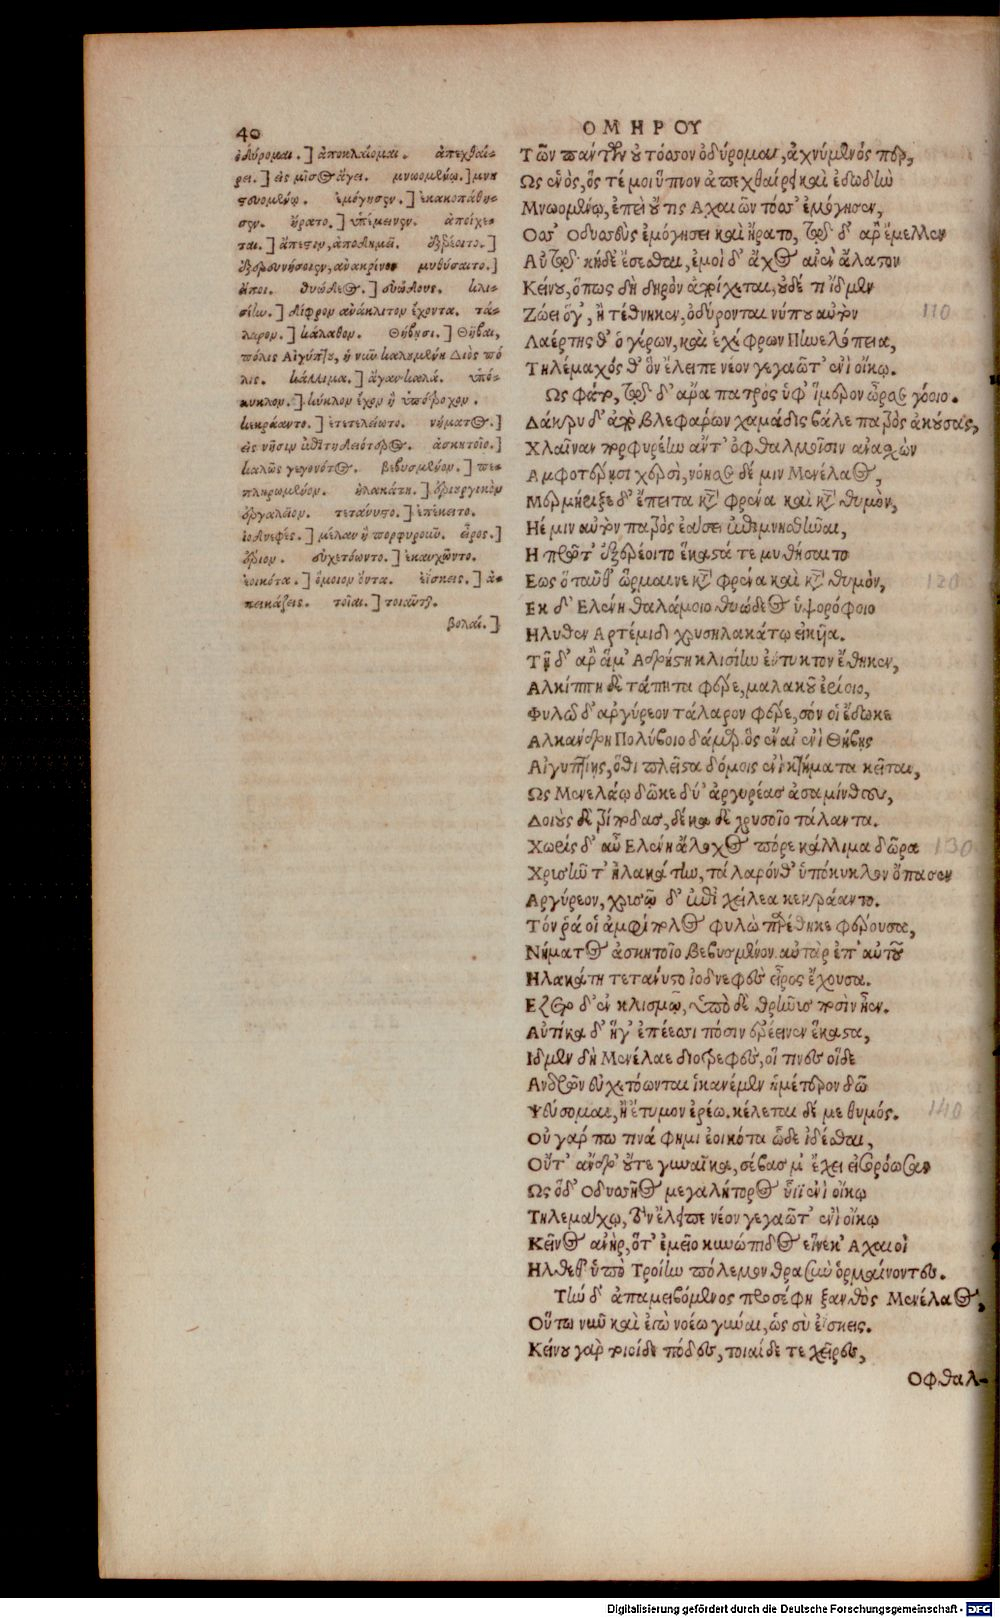 40
ΟΜΗΡΟΥ
ὀδύρομαι.] ἀποκλαίομαι. ἀπεχθαί-
ρει.] εἰς μῖσος ἄγει. μνωομένῳ.] μνη
σσυομένῳ. ἐμόγησεν.] ἐκακοπάθη-
σεν. ἤρατο.] ὑπέμεινεν. ἀποίχε-
ται.] ἄπεστιν, ἀποδημεῖ. ἐξερέοιτο.]
ἐξερευνήσοιεν, ἀνακρίνοι μυθήσαιτο.]
εἴποι. θυώδεος.] εὐώδους. κλι-
σίην.] δίφρον ἀνάκλιτον ἔχοντα. τά-
λαρον.] κάλαθον. Θήβῃσι.] Θῆβαι,
πόλις Αἰγύπτου, ἡ νῦν καλουμένη Διὸς πό
λις. κάλλιμα.] ἄγαν καλά. ὑπό-
κυκλον.] κύκλον ἔχον ἢ ὑπότροχον.
κεκράαντο.] ἐτετελείωτο. νήματος.]
εἰς νῆσιν ἐπιτηδειότερος. ἀσκητοῖο.]
καλῶς γεγονότος. βεβυσμένον.] πε-
πληρωμένον. ἠλακάτη.] ἐριουργικὸν
ἐργαλεῖον. τετάνυστο.] ἐπέκειτο.
ἰοδνεφές.] μέλαν ἢ πορφυροῦν. εἶρος.]
ἔριον. εὐχετόωντο.] ἐκαυχῶντο.
ἐοικότα.] ὅμοιον ὄντα. ἐΐσκεις.] ἀ-
πεικάζεις. τοῖαι.] τοιαῦται.
βολαί.]
Τῶν πάντων οὐ τόσσον ὀδύρομαι, ἀχνύμενός περ,
Ως ἑνὸς, ὅς τέ μοι ὕπνον ἀπεχθαίρει καὶ ἐδωδὴν
Μνωομένῳ, ἐπεὶ οὔτις Αχαιῶν τόσσ' ἐμόγησεν,
Οσσ' Οδυσσεὺς ἐμόγησε καὶ ἤρατο, τῷ δ' ἀρ' ἔμελλεν
Αὐτῷ κήδε' ἔσεσθαι, ἐμοὶ δ' ἄχος αἰὲν ἄλαστον
Κείνου, ὅπως δὴ δηρὸν ἀποίχεται, οὐδέ τι ἴδμεν
Ζώει ὅγ', ἢ τέθνηκεν, ὀδύρονταί νύ που αὐτὸν
110
Λαέρτης θ' ὁ γέρων, καὶ ἐχέφρων Πηνελόπεια,
Τηλέμαχός θ' ὃν ἔλειπε νέον γεγαῶτ' ἐνὶ οἴκῳ.
Ως φάτο, τῷ δ' ἄρα πατρὸς ὑφ' ἵμερον ὦρσε γόοιο.
Δάκρυ δ' ἀπὸ βλεφάρων χαμάδις βάλε πατρὸς ἀκούσας,
Χλαῖναν πορφυρέην ἄντ' ὀφθαλμοῖσιν ἀνασχὼν
Αμφοτέρῃσι χερσὶ, νόησε δέ μιν Μενέλαος,
Μερμήριξε δ' ἔπειτα κατὰ φρένα καὶ κατὰ θυμὸν,
Ηέ μιν αὐτὸν πατρὸς ἐάσειε μνησθῆναι,
Η πρῶτ' ἐξερέοιτο ἕκαστά τε μυθήσαιτο
Εως ὁ ταῦθ' ὥρμαινε κατὰ φρένα καὶ κατὰ θυμὸν,
120
Εκ δ' Ελένη θαλάμοιο θυώδεος ὑψορόφοιο
Ηλυθεν Αρτέμιδι χρυσηλακάτῳ εἰκυῖα.
Τῇ δ' ἀρ' ἅμ' Αδρήστη κλισίην εὔτυκτον ἔθηκεν,
Αλκίππη δὲ τάπητα φέρε, μαλακοῦ ἐρίοιο,
Φυλὼ δ' ἀργύρεον τάλαρον φέρε, τόν οἱ ἔδωκε
Αλκάνδρη Πολύβοιο δάμαρ ὃς ἔναι' ἐνὶ Θήβῃς
Αἰγυπτίῃς, ὅθι πλεῖστα δόμοις ἐνὶ κτήματα κεῖται,
Ως Μενελάῳ δῶκε δύ' ἀργυρέας ἀσαμίνθους,
Δοιοὺς δὲ τρίποδας, δέκα δὲ χρυσοῖο τάλαντα.
Χωρὶς δ' αὖ Ελένῃ ἄλοχος πόρε κάλλιμα δῶρα
130
Χρυσῆν τ' ἠλακάτην, τάλαρόν θ' ὑπόκυκλον ὄπασεν
Αργύρεον, χρυσῷ δ' ἐπὶ χείλεα κεκράαντο.
Τόν ῥά οἱ ἀμφίπολος φυλὼ παρέθηκε φέρουσα,
Νήματος ἀσκητοῖο βεβυσμένον. αὐτὰρ ἐπ' αὐτοῦ
Ηλακάτη τετάνυστο ἰοδνεφὲς εἶρος ἔχουσα.
Εζετο δ' ἐν κλισμῷ, ὑπὸ δὲ θρῆνυς ποσὶν ἦεν.
Αὐτίκα δ' ἥγ' ἐπέεσσι πόσιν ἐρέεινεν ἕκαστα,
Ιδμεν δὴ Μενέλαε διοτρεφὲς, οἵ τινες οἵδε
Ανδρῶν εὐχετόωνται ἱκανέμεν ἡμέτερον δῶ
Ψεύσομαι, ἢ ἔτυμον ἐρέω. κέλεται δέ με θυμός.
140
Οὐ γάρ πω τινά φημι ἐοικότα ὧδε ἰδέσθαι,
Οὔτ' ἄνδρ' οὔτε γυναῖκα, σέβας μ' ἔχει εἰσορόωσαν
Ως ὅδ' Οδυσσῆος μεγαλήτορος υἷϊ ἐνὶ οἴκῳ
Τηλεμάχῳ, τὸν ἔλειπε νέον γεγαῶτ' ἐνὶ οἴκῳ
Κεῖνος ἀνὴρ, ὅτ' ἐμεῖο κυνώπιδος εἵνεκ' Αχαιοὶ
Ηλθεθ' ὑπὸ Τροίην πόλεμον θρασὺν ὁρμαίνοντες.
Τὴν δ' ἀπαμειβόμενος προσέφη ξανθὸς Μενέλαος,
Οὕτω νῦν καὶ ἐγὼ νοέω γύναι, ὡς σὺ ἐΐσκεις.
Κείνου γὰρ τοιοίδε πόδες, τοιαίδε τε χεῖρες,
Οφθαλ-
Digitalisierung gefördert durch die Deutsche Forschungsgemeinschaft - DFG